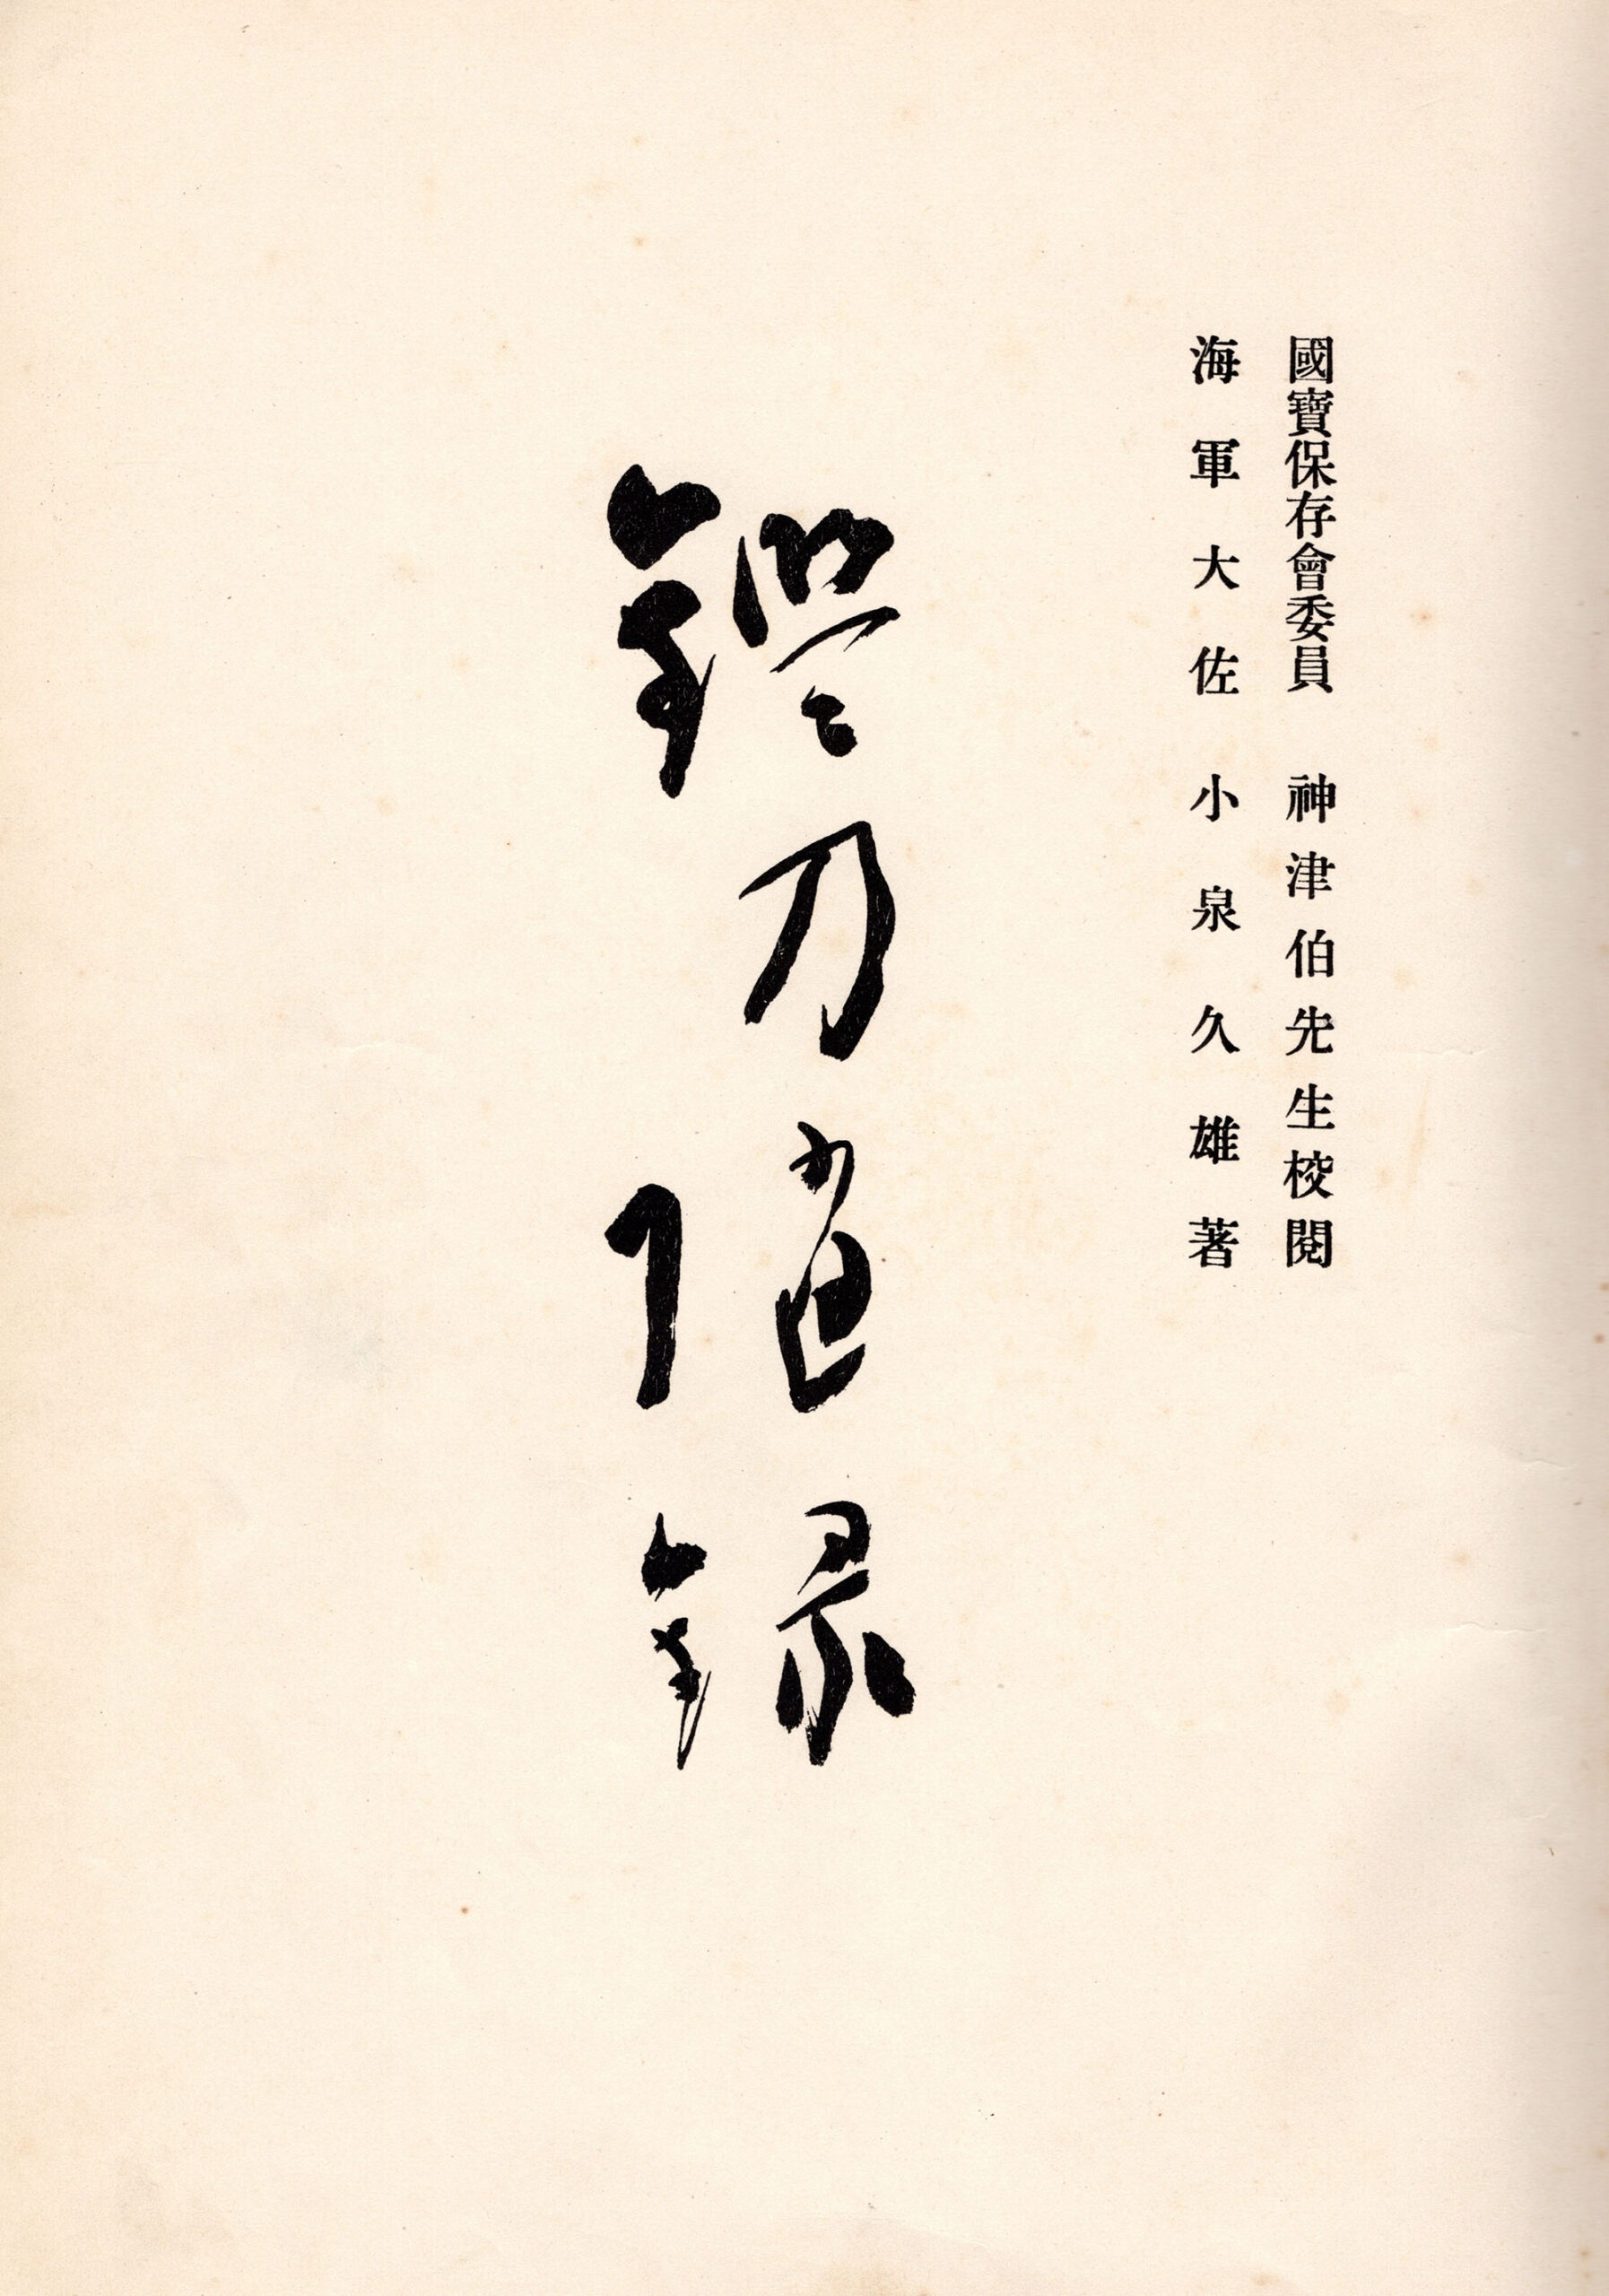 國寶保存會委員　神津伯先生校閱
海軍大佐　小泉久雄著
鑑刀随録